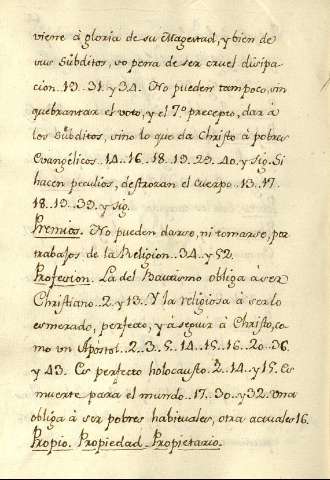 viene à gloria de su Magestad, y bien de
sus Subditos, so pena de ser cruel disipa-
cion..19..31. y 34. No pueden tampoco, sin
quebrantar el voto, y el 7.º precepto, dar à
los Subditos, sino lo que da Christo à pobres
Evangelicos..14..16..18..19..29..40. y sig. Si
hacen peculios, destrozan el Cuerpo..13..17.
18..19..39. y sig.
Premios. No pueden darse, ni tomarse, por
trabajos de la Religion..34. y 52.
Profesion. La del Bautismo obliga à ser
Christiano..2. y 13. Y la religiosa à serlo
esmerado, perfecto, y à seguir à Christo, co-
mo un Apostol..2..3..5..14..15..16..20..36.
y 43. Es perfecto holocausto..2..14. y 15. Es
muerte para el mundo..17..30. y 32. Una
obliga à ser pobres habituales, otra actuales 16.
Propio. Propiedad. Propietario.